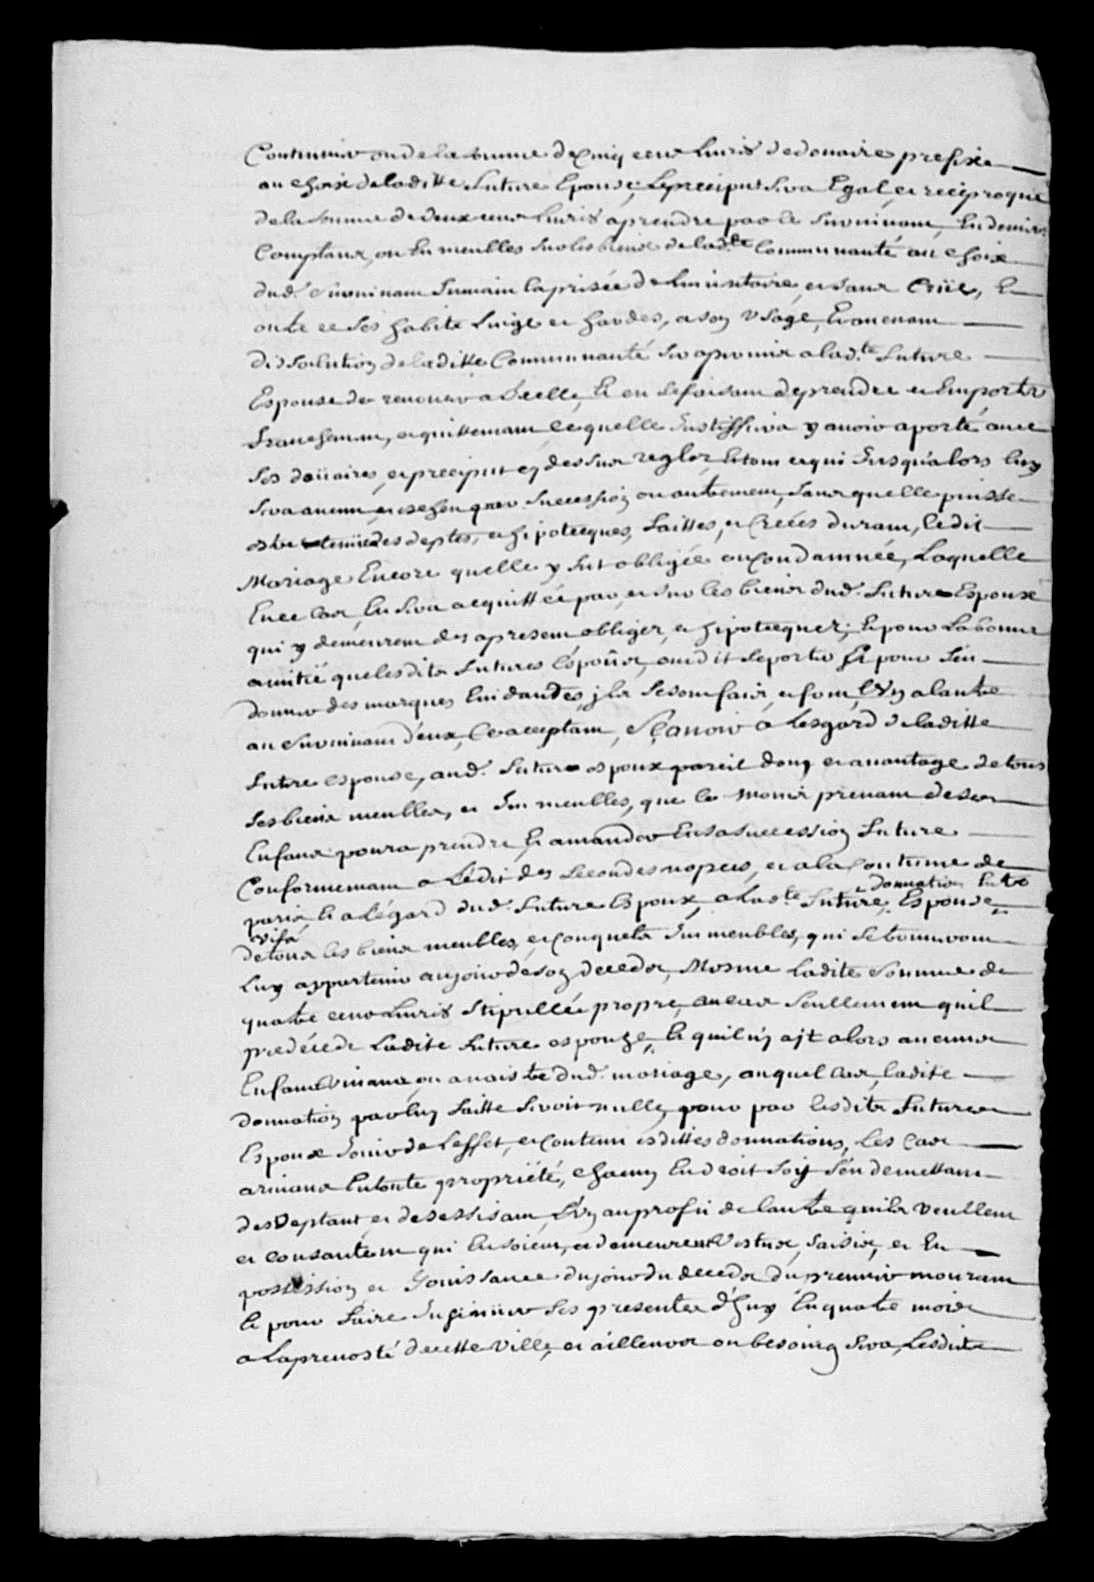 Coutumier ou de la somme de Cinq cent Livres de douaire prefixe
au choix de laditte future Epouse, Le preciput sera Egal, et reciproque
de la somme de deux cent Livres a prendre par le Survivant, En deniers
Comptant, ou En meubles sur les biens de lad.te Communauté au choix
dud. Survivant Suivant la prisée de L'inventaire, et sans Criie, Et
outre ce Ses habits Linge et hardes, a son Usage, Et avenant
dissolution de laditte Communauté sera permis a lad.te future
Espouse de renoncer a Icelle, Et en ce faisant de prendre et Emporter
franchement, et quittement ce quelle Justiffiera y avoir aporté avec
Ses doüaires, et preciput cy dessus reglez, Et tout ce qui Jusqu'alors luy
sera avenu et escheu par Succession ou autrement, sans quelle puisse
estre tenüe des deptes, et hipotecques, faittes, et Creées durant, ledit
Mariage Encore quelle y fut obligée ou Condamnée, Laquelle
En ce Cas, En sera acquittée par, et sur les biens dud. future Espoux
qui y demeurent des apresent obligez, et hipotecquez; Et pour La bonne
amitié que lesdits futures Espoux, ont dit se porter Et pour s'en
donner des marques Evidantes, jls se sont fait, et font, L'Un a lautre
au Survivant d'eux, Ce acceptant, Sçavoir a Lesgard de laditte
future espouse, aud. future espoux pareil don, et avantage de tous
Ses biens meubles, et Immeubles, que le moins prenant de ses
Enfans poura prendre, Et amander En sa succession future
Conformement a L'édit des secondes nopces, et a la Coutume de
paris, Et a Légard dud. future Espoux, a Lad.te future Espouse,
donnation Entre
vifs
de tous les biens meubles, et conquets Immeubles, qui se trouveront
Luy appartenir au jour de son decedz, Mesme Ladite Somme de
quatre cent Livres Stipullée propre, au cas seullement quil
predécede Ladite future espouze, Et quil n'y ait alors aucuns
Enfans Vivans, ou a naistre dud. mariage, auquel Cas, ladite
donnation par luy faitte seroit nulle, pour par lesdits futures
Espoux Jouir de L'effet, et Contenu esdittes donnations, Les Cas
arivans En toute propriété, chacun En droit soy s'en demettant
des Veptant et desessisant, L'Un au profit de lautre quils veullent
et consantent qui En soient, et demeurent Vestus, saisis, et En
possession et Jouissance du jour du decedz du premier mourant
Et pour faire Insinüer Ses presentes d'huy En quatre mois
a La prevosté de cette Ville, et ailleurs ou besoing sera, Lesdits